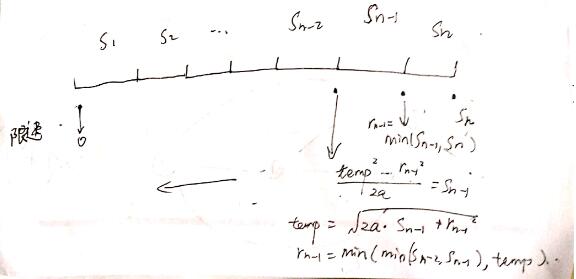 S₁ S₂ ... Sₙ₋₂ Sₙ₋₁ Sₙ
限速 0
rₙ₋₁ = min(Sₙ₋₁, Sₙ) Sₙ
(temp² - rₙ₋₁²) / 2a = Sₙ₋₁
temp = √(2a · Sₙ₋₁ + rₙ₋₁²)
rₙ₋₁ = min(min(Sₙ₋₂, Sₙ₋₁), temp)..